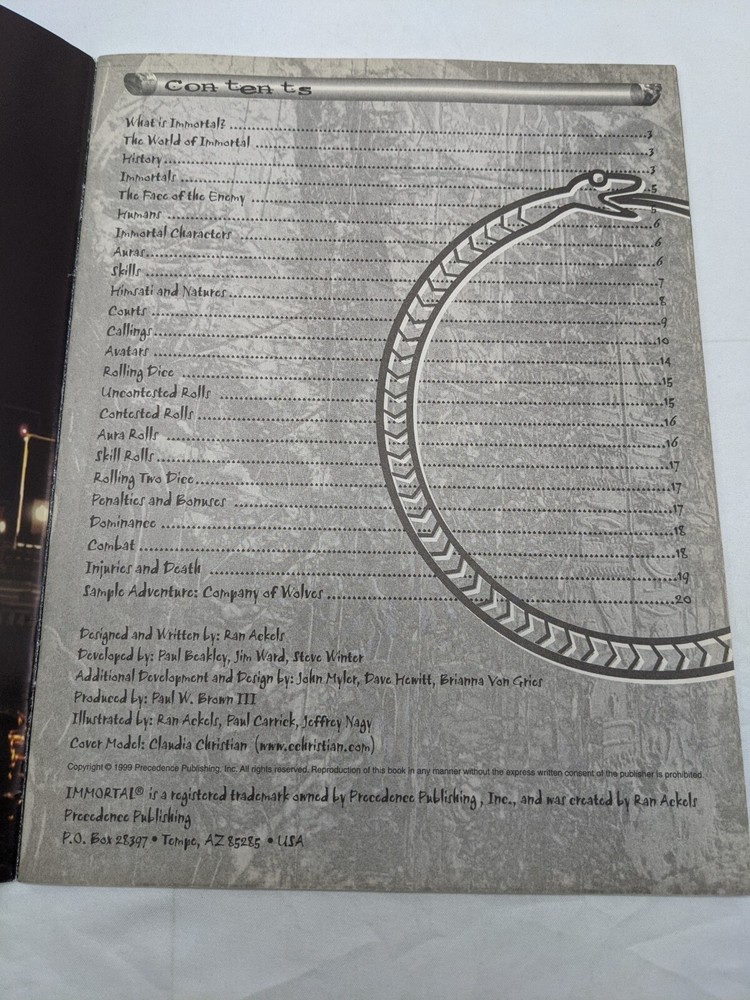 Contents
What is Immortal? ........ 3
The World of Immortal ........ 3
History ........ 3
Immortals ........ 5
The Face of the Enemy ........ 5
Humans ........ 6
Immortal Characters ........ 6
Auras ........ 6
Skills ........ 7
Himsati and Natures ........ 8
Courts ........ 9
Callings ........ 10
Avatars ........ 14
Rolling Dice ........ 15
Uncontested Rolls ........ 15
Contested Rolls ........ 16
Aura Rolls ........ 16
Skill Rolls ........ 17
Rolling Two Dice ........ 17
Penalties and Bonuses ........ 17
Dominance ........ 18
Combat ........ 18
Injuries and Death ........ 19
Sample Adventure: Company of Wolves ........ 20
Designed and Written by: Ran Ackels
Developed by: Paul Beakley, Jim Ward, Steve Winter
Additional Development and Design by: John Myler, Dave Hewitt, Brianna Von Gries
Produced by: Paul W. Brown III
Illustrated by: Ran Ackels, Paul Carrick, Jeffrey Nagy
Cover Model: Claudia Christian (www.cchristian.com)
Copyright © 1999 Precedence Publishing, Inc. All rights reserved. Reproduction of this book in any manner without the express written consent of the publisher is prohibited.
IMMORTAL® is a registered trademark owned by Precedence Publishing, Inc., and was created by Ran Ackels
Precedence Publishing
P.O. Box 28397 • Tempe, AZ 85285 • USA